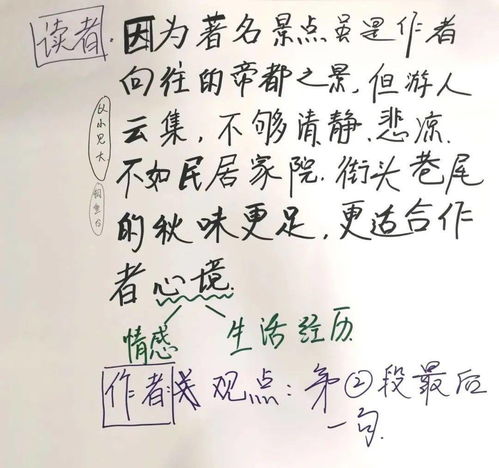 读者.因为著名景点虽是作者
向往的帝都之景,但游人
云集,不够清静、悲凉.
不如民居家院.街头巷尾
的秋味更足,更适合作
者心境.
以小见大
情感 生活经历
作者 观点:第②段最后
一句.